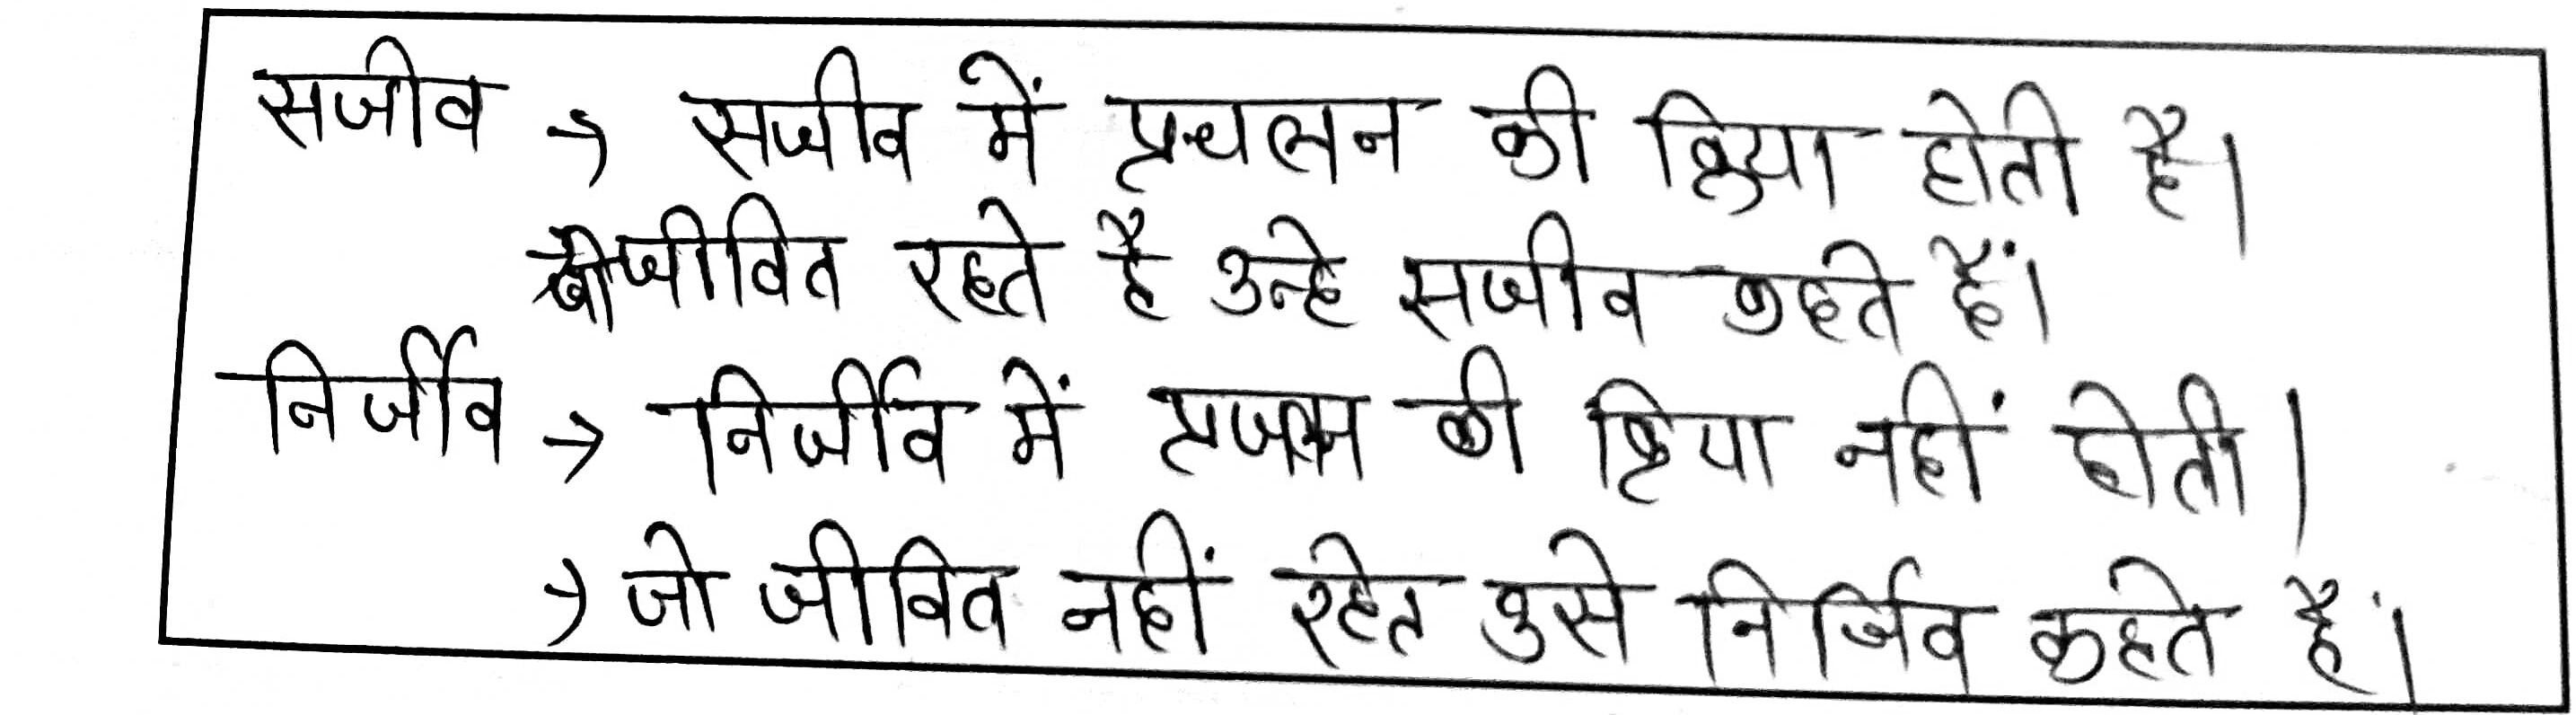 सजीव → सजीव में प्रचलन की क्रिया होती है।
जीवित रहते है उन्हे सजीव कहते हैं।
निर्जीव → निर्जीव में की क्रिया नहीं होती।
→ जो जीवित नहीं रहेत उसे निर्जिव कहते हैं।